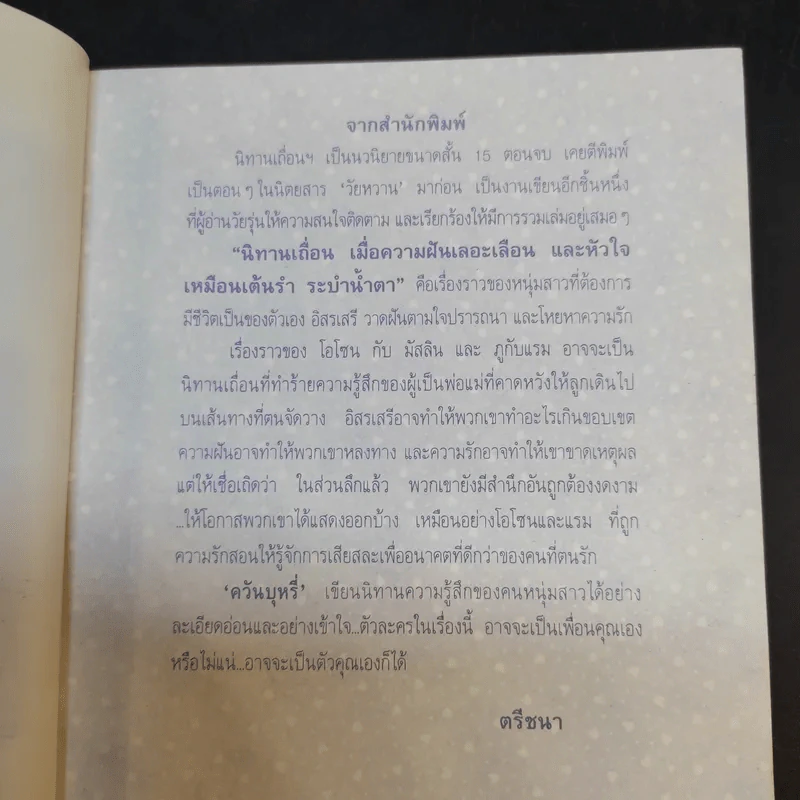 จากสำนักพิมพ์
นิทานเถื่อนฯ เป็นนวนิยายขนาดสั้น 15 ตอนจบ เคยตีพิมพ์
เป็นตอน ๆ ในนิตยสาร ‘วัยหวาน’ มาก่อน เป็นงานเขียนอีกชิ้นหนึ่ง
ที่ผู้อ่านวัยรุ่นให้ความสนใจติดตาม และเรียกร้องให้มีการรวมเล่มอยู่เสมอ ๆ
“นิทานเถื่อน เมื่อความฝันเลอะเลือน และหัวใจ
เหมือนเต้นรำ ระบำน้ำตา” คือเรื่องราวของหนุ่มสาวที่ต้องการ
มีชีวิตเป็นของตัวเอง อิสรเสรี วาดฝันตามใจปรารถนา และโหยหาความรัก
เรื่องราวของ โอโซน กับ มัสลิน และ ภูกับแรม อาจจะเป็น
นิทานเถื่อนที่ทำร้ายความรู้สึกของผู้เป็นพ่อแม่ที่คาดหวังให้ลูกเดินไป
บนเส้นทางที่ตนจัดวาง อิสรเสรีอาจทำให้พวกเขาทำอะไรเกินขอบเขต
ความฝันอาจทำให้พวกเขาหลงทาง และความรักอาจทำให้เขาขาดเหตุผล
แต่ให้เชื่อเถิดว่า ในส่วนลึกแล้ว พวกเขายังมีสำนึกอันถูกต้องงดงาม
...ให้โอกาสพวกเขาได้แสดงออกบ้าง เหมือนอย่างโอโซนและแรม ที่ถูก
ความรักสอนให้รู้จักการเสียสละเพื่ออนาคตที่ดีกว่าของคนที่ตนรัก
‘ควันบุหรี่’ เขียนนิทานความรู้สึกของคนหนุ่มสาวได้อย่าง
ละเอียดอ่อนและอย่างเข้าใจ...ตัวละครในเรื่องนี้ อาจจะเป็นเพื่อนคุณเอง
หรือไม่แน่...อาจจะเป็นตัวคุณเองก็ได้
ตรีชนา